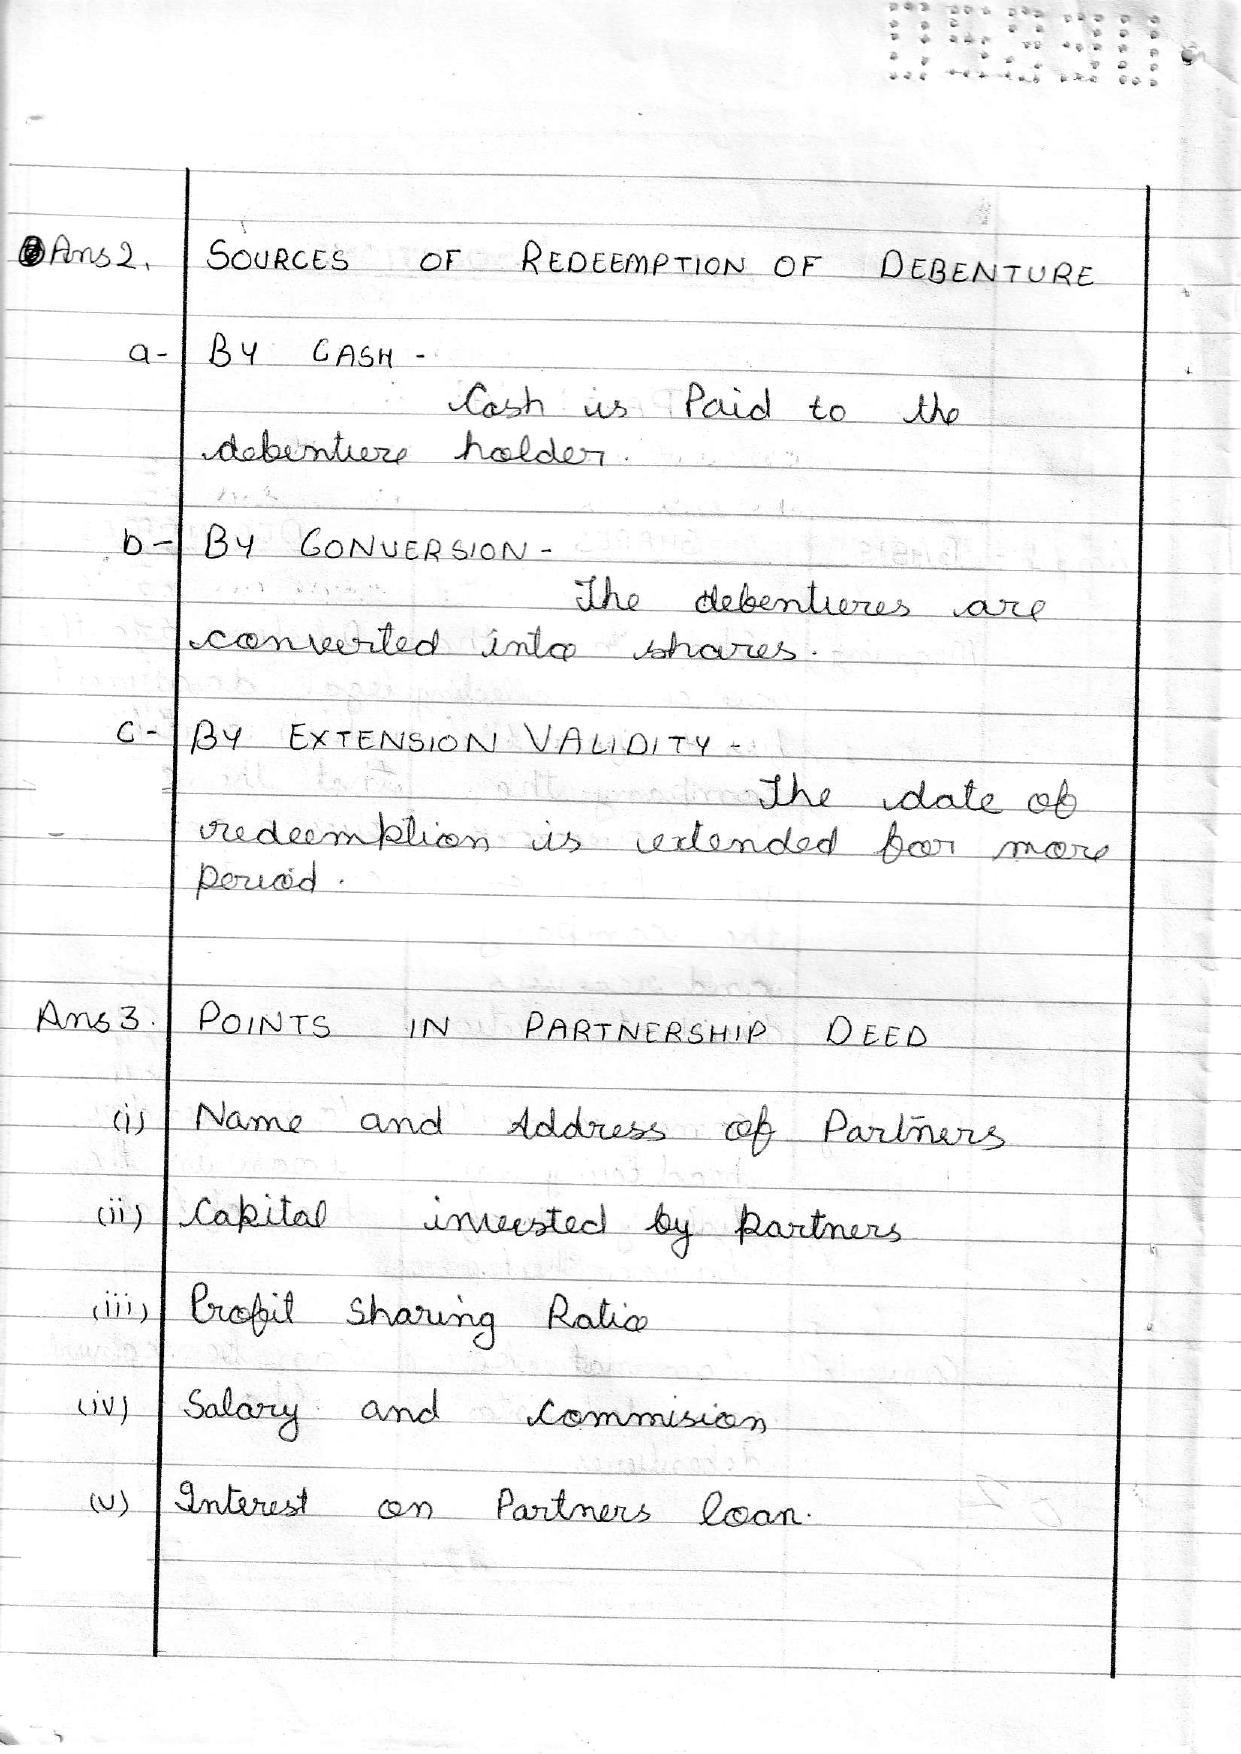 Ans 2. SOURCES OF REDEEMPTION OF DEBENTURE
a- BY CASH -
Cash is Paid to the
debenture holder.
b- BY CONVERSION -
The debentures are
converted into shares.
c- BY EXTENSION VALIDITY -
The date of
redeemption is extended for more
period.
Ans 3. POINTS IN PARTNERSHIP DEED
(i) Name and Address of Partners
(ii) Capital invested by partners
(iii) Profit Sharing Ratio
(iv) Salary and Commision
(v) Interest on Partners loan.